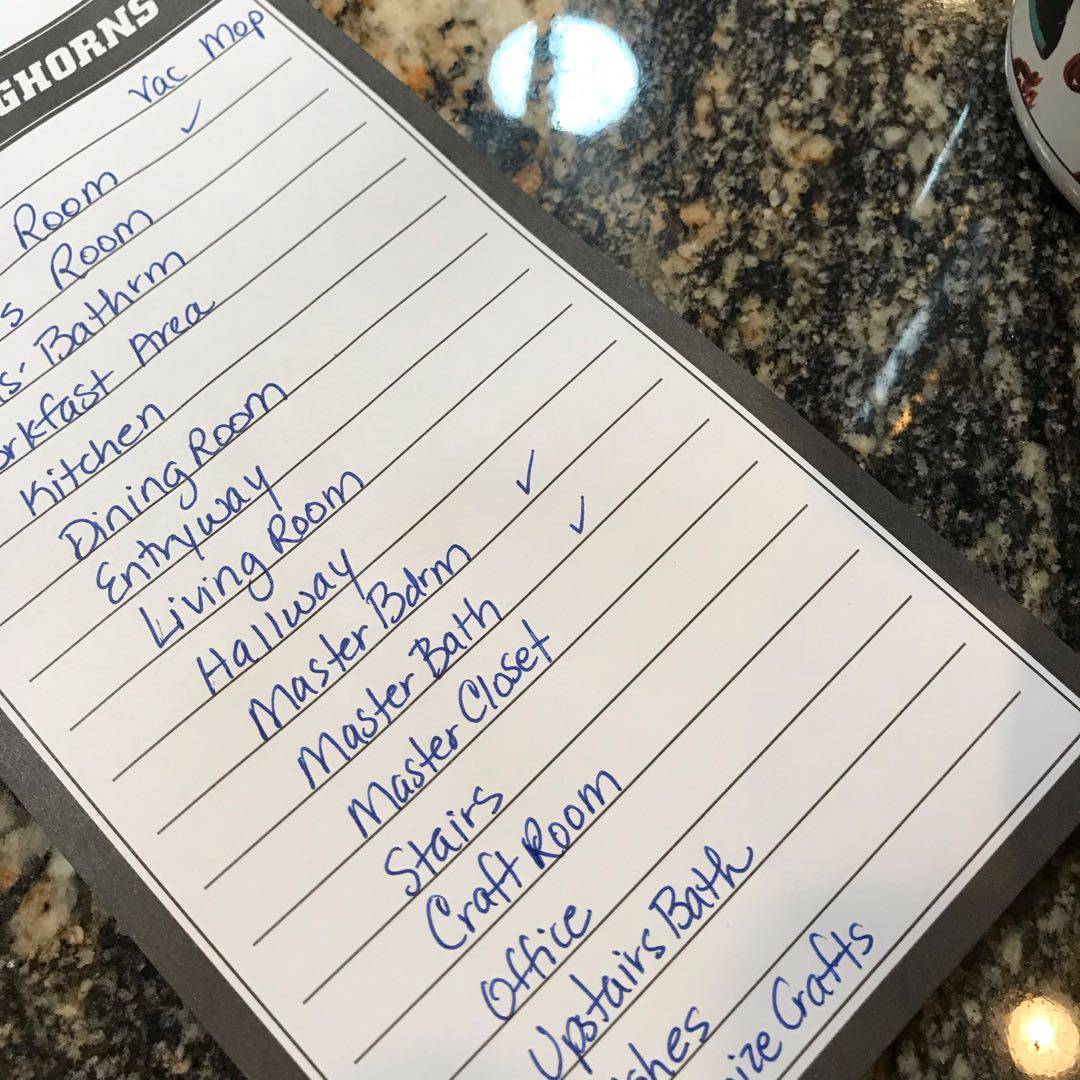 GHORNS
Vac Mop
Room ✓
s Room
s' Bathrm
rkfast Area
Kitchen
Dining Room
Entryway
Living Room
Hallway
Master Bdrm ✓
Master Bath ✓
Master Closet
Stairs
Craft Room
Office
Upstairs Bath
shes
ize Crafts